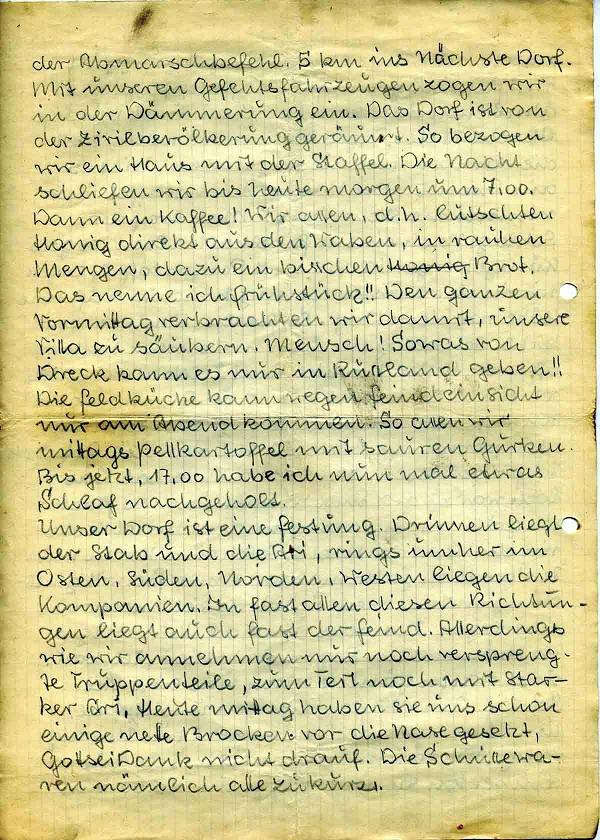 der Abmarschbefehl. 5 km ins Nächste Dorf.
Mit unseren Gefechtsfahrzeugen zogen wir
in der Dämmerung ein. Das Dorf ist von
der Zivilbevölkerung geräumt. So bezogen
wir ein Haus mit der Staffel. Die Nacht
schliefen wir bis heute morgen um 7,00.
Dann ein Kaffee! Wir assen, d.h. lutschten
Honig direkt aus den Waben, in rauhen
Mengen, dazu ein bischen Honig Brot.
Das nenne ich Frühstück!! Den ganzen
Vormittag verbrachten wir damit, unsere
Villa zu säubern. Mensch! Sowas von
Dreck kann es nur in Rußland geben!!
Die Feldküche kann wegen Feindeinsicht
nur am Abend kommen. So assen wir
mittags Pellkartoffel mit sauren Gurken.
Bis jetzt, 17,00 habe ich nun mal etwas
Schlaf nachgeholt.
Unser Dorf ist eine Festung. Drinnen liegt
der Stab und die Ari, rings umher im
Osten, Süden, Norden, Westen liegen die
Kompanien. In fast allen diesen Richtun-
gen liegt auch fast der Feind. Allerdings
wie wir annehmen nur noch verspreng-
te Truppenteile, zum Teil noch mit star-
ker Ari. Heute mittag haben sie uns schon
einige nette Brocken vor die Nase gesetzt,
Gottsei Dank nicht drauf. Die Schüsse wa-
ren nämlich alle zu kurz.